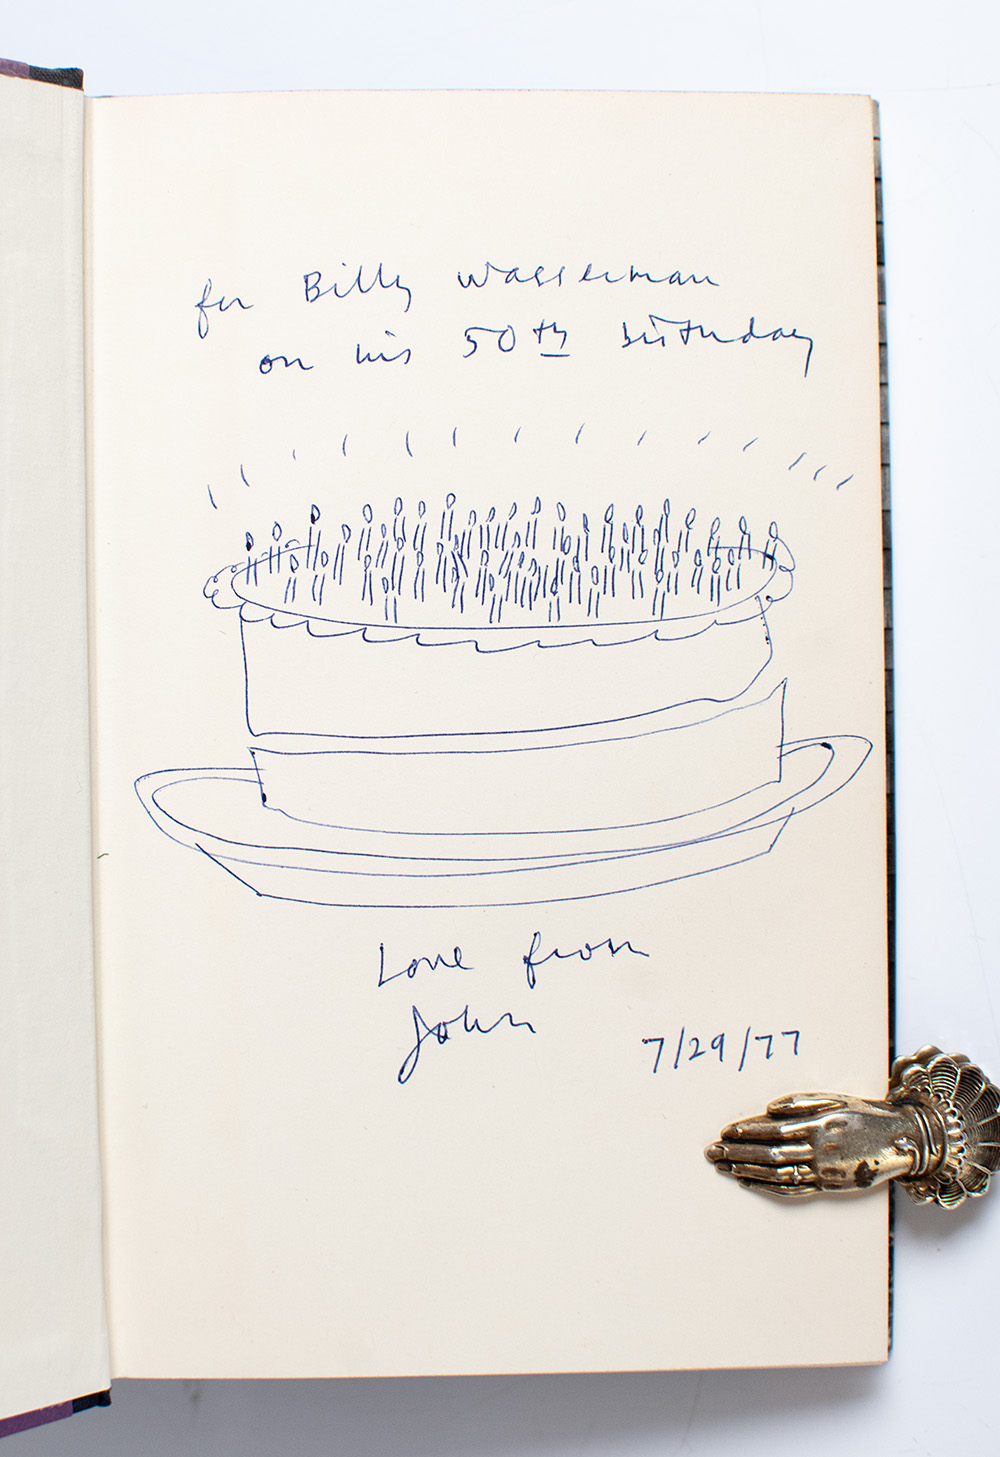 for Billy Wasserman
on his 50th birthday
Love from
John
7/29/77